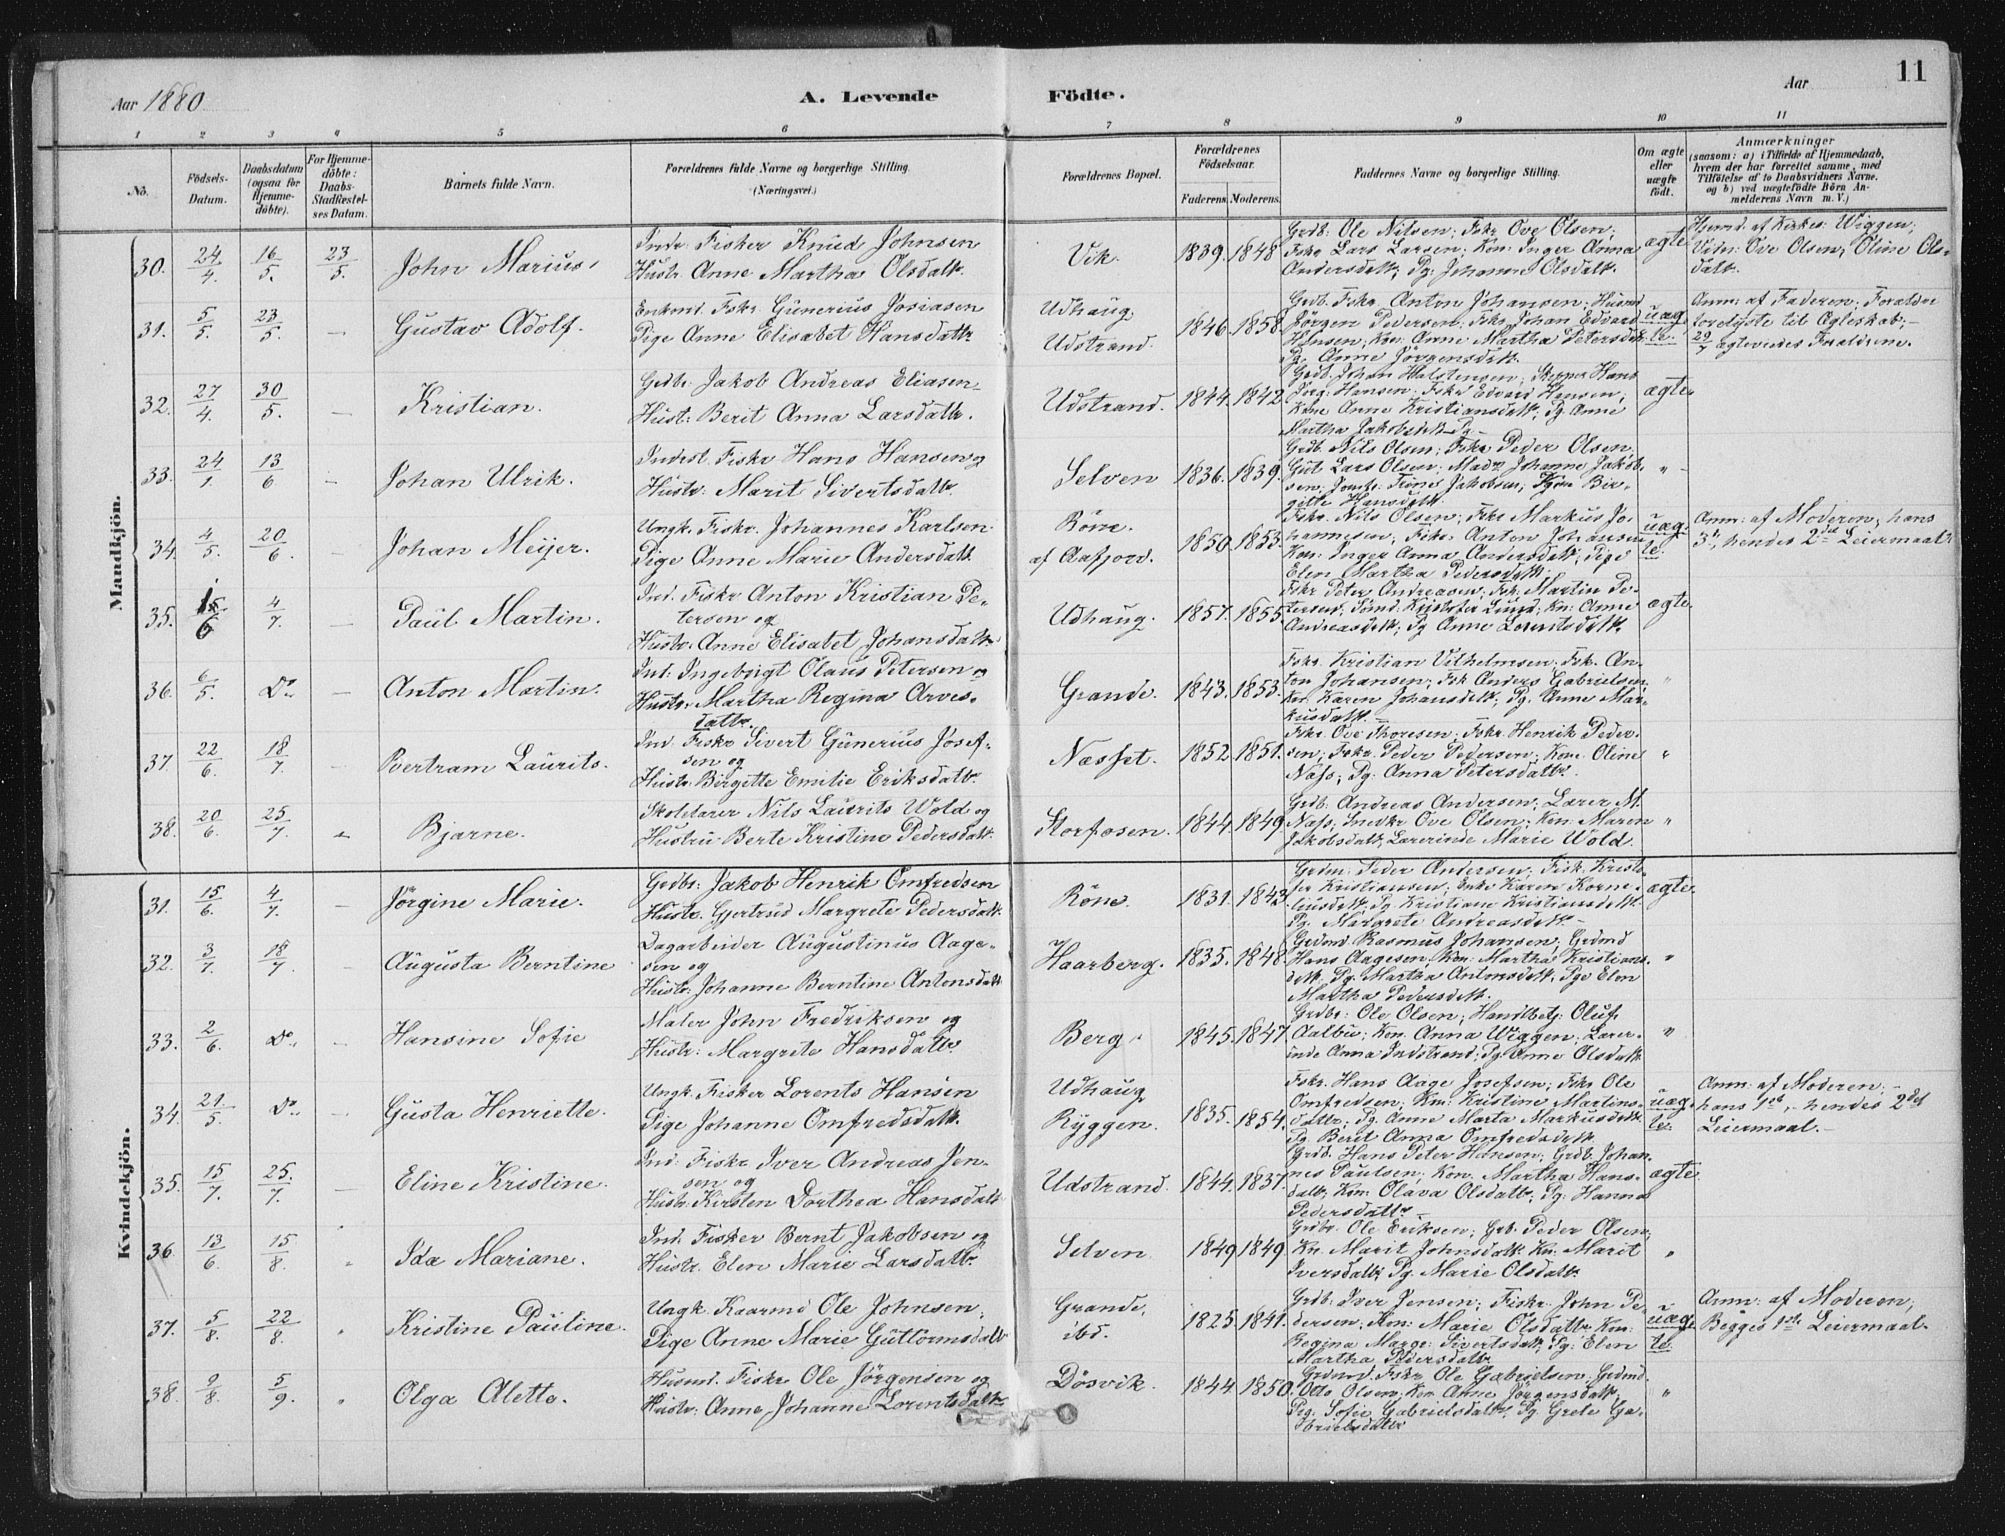 Aar 1880
A. Levende Födte.
Aar
11
1 2 3 4 5 6 7 8 9 10 11
No.
Födsels-Datum.
Daabsdatum (ogsaa for Hjemme-döbte).
For Hjemme-döbte: Daabs-Stadfæstelses Datum.
Barnets fulde Navn.
Forældrenes fulde Navne og borgerlige Stilling. (Næringsvei.)
Forældrenes Bopæl.
Forældrenes Födselsaar.
Faderens. Moderens.
Faddernes Navne og borgerlige Stilling.
Om ægte eller uægte födt.
Anmærkninger
(saasom: a) i Tilfælde af Hjemmedaab,
hvem der har forrettet samme, med
Tilföielse af to Daabsvidners Navne,
og b) ved uægtefödte Börn An-
melderens Navn m. V.)
Mandkjön.
30. 24/4. 16/5. 23/5. John Marius.
Indr. Fisker Knud Johnsen
Hustr. Anne Martha Olsdatr.
Vik. 1839. 1848
Grdb: Ole Nilsen; Fskr Ove Olsen;
Fskr Lars Larsen; Kon: Inger Anna
Andersdatr; Pg: Johanne Olsdatr.
ægte
Hjemd. af Kirkes: Wiggen;
Vidn: Ove Olsen, Oline Ols-
datr.
31. 5/5. 23/5. — Gustav Adolf.
Enkmd. Fskr. Gunerius Josiasen
Pige Anne Elisabet Hansdatr
Udhaug,
Udstrand.
1846. 1858.
Grdb. Fskr Anton Johansen; Husmd
Jörgen Pedersen; Fskr Johan Edvard
Hansen; Kon: Anne Martha Petersdatr
Pg. Anne Jörgensdatr.
uæg-
te.
Anm: af Faderen. Forældre
forelyste til Ægteskab;—
29/7 ægteviedes Forældrene.
32. 27/4. 30/5. — Kristian.
Grdbr: Jakob Andreas Eliasen
Hustr: Berit Anna Larsdatr.
Udstrand. 1844. 1842
Grdb. Johan Halstensen; Skipper Hans
Jörg. Hansen; Fskr Edvard Hansen;
Kone Anne Kristiansdatr; Pg. Anne
Martha Jakobsdatr
ægte.
33. 24/1 13/6 — Johan Ulrik.
Inderst. Fiskr Hans Hansen og
Hustr: Marit Sivertsdatr.
Selven 1836. 1839.
Grdb. Nils Olsen; Fskr Peder Olsen;
Gut Lars Olsen; Madm Johanne Jakob-
sen; Jomfr. Trine Jakobsen; Bir-
gitte Hansdatr.
"
34. 4/5. 20/6. Johan Meijer.
Ungk. Fiskr. Johannes Karlsen
Pige Anne Marie Andersdatr
Röne.
af Aafjord.
1850. 1853.
Fskr. Nils Olsen; Fskr Markus Jo-
hannesen; Fiskr Anton Johansen
Kon: Inger Anna Andersdatr; Pige
Elen Martha Pedersdatr.
uæg-
te.
Anm: af Moderen; hans
3die, hendes 2det Leiermaal.
35. 15/6 4/7. — Paul Martin.
Ind. Fiskr Anton Kristian Pe-
tersen og
Hustr: Anne Elisabet Johansdatr
Udhaug. 1857. 1855.
Fskr Peter Andreasen; Fsk. Martin Pe-
tersen; Sömd. Kristofer Lund; Kn: Anne
Andreasdatr; Pg Anne Lorentsdatr.
ægte.
36. 6/5. Do. — Anton Martin.
Int: Ingebrigt Olaus Petersen og
Hustr. Martha Regina Arves-
datr.
Grande. 1843. 1853.
Fskr. Kristian Vilhelmsen; Fsk. An-
ton Johansen; Fsk Anders Gabrielsen;
Kon. Karen Johansdatr; Pg. Anne Mar-
kusdatr.
"
37. 22/6. 18/7. — Bertram Laurits.
Ind. Fiskr Sivert Gunerius Josef-
sen og
Hustr: Birgitte Emilie Eriksdatr.
Næsset. 1852. 1851.
Fskr. Ove Thoresen; Fskr. Henrik Peder-
sen; Fskr. Peder Pedersen; Kon: Oline
Næss; Pg. Anna Petersdatr.
"
38. 20/6. 25/7. Bjarne.
Skolelærer Nils Laurits Wold og
Hustru Berte Kristine Pedersdatr.
Storfosen. 1844. 1849
Grdb: Andreas Andersen; Lærer M.
Næss; Snedkr Ove Olsen; Kon: Maren
Jakobsdatr, Lærerinde Marie Wold.
"
Kvindekjön.
31. 15/6. 4/7. — Jörgine Marie.
Grdbr: Jakob Henrik Omfredsen
Hustr. Gjertrud Margrete Pedersdatr.
Röne. 1831. 1843.
Grdm: Peder Andersen; Fisk: Kristo-
fer Kristiansen; Enke Karen Korne-
liusdatr. Pg Kristiane Kristiansdatr.
Pg. Margrete Andreasdatr.
ægte.
32. 3/7. 18/7. — Augusta Berntine
Dagarbeider Augustinus Aage-
sen og
Hustr: Johanne Berntine Antonsdatr
Haarberg. 1835. 1848.
Grdmd Rasmus Johansen, Grdmd
Hans Aagesen; Kon: Martha Kristians-
datr. Pg. Martha Antonsdatr. Pge Elen
Martha Pedersdatr.
"
33. 2/6. Do. — Hansine Sofie
Maler John Fredriksen og
Hustr: Margrete Hansdatr.
Berg. 1845. 1847.
Grdbr: Ole Olsen; Handlbetj. Oluf
Aalbu; Kon: Anna Wiggen; Lærer-
inde Anna Indstrand; Pg. Anne Olsdatr.
"
34. 21/5. Do. — Gusta Henriette.
Ungk. Fisker Lorents Hansen
Pige Johanne Omfredsdatr.
Udhaug
Ryggen.
1835. 1854.
Fskr. Hans Aage Josefsen; Fskr Ole
Omfredsen; Kon: Kristine Martins-
datr; Pg. Anne Marta Markusdatr.
Pg Berit Anna Omfredsdatr
uæg-
te.
Anm: af Moderen;
hans 1ste, hendes 2det
Leiermaal.—
35. 15/7. 25./7. — Eline Kristine.
Ind. Fiskr Iver Andreas Jen-
sen og
Hustr. Kirsten Dorthea Hansdatr
Udstrand. 1844. 1837.
Grdb. Hans Peter Hansen; Grdb. Johan-
nes Paulsen; Kon. Martha Hans-
datr; Kon: Olava Olsdatr. Pg: Hanna
Pedersdatr.
ægte
36. 13/6. 15/8. " Ida Mariane.
Ind. Fisker Bernt Jakobsen og
Hustr. Elen Marie Larsdatr.
Selven 1849 1849
Grdbr. Ole Eriksen; Grb. Peder Olsen;
Kn. Marit Johnsdatr. Kn. Marit
Iversdatr; Pg. Marie Olsdatr.
"
37. 5/8. 22/8. " Kristine Pauline.
Ungk. Kaarmd Ole Johnsen;
Pige Anne Marie Guttormsdatr
Grande,
ibd.
1825. 1841.
Grdb: Iver Jensen; Fiskr John Pe-
dersen; Kon: Marie Olsdatr. Kon:
Regina Marg: Sivertsdatr; Pg: Elen
Martha Pedersdatr.
uæg-
te.
Anm: af Moderen;
Begges 1ste Leiermaal.
38. 9/8. 5/9. " Olga Alette.
Husmd. Fiskr Ole Jörgensen og
Hustr: Anne Johanne Lorentsdatr.
Dösvik. 1844 1850.
Grdmd. Fskr Ole Gabrielsen; Grdmd.
Otto Olsen; Kon. Anne Jörgensdatr;
Pg. Sofie Gabrielsdatr, Pg. Grete Ga-
brielsdatr
"